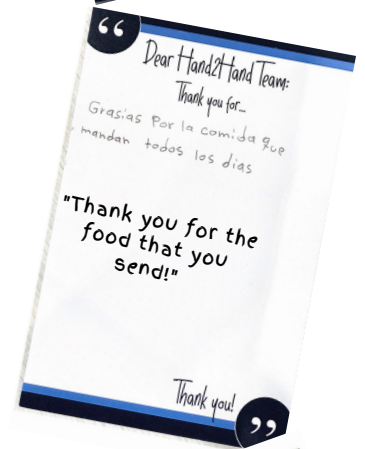 “
Dear Hand2Hand Team:
Thank you for...
Grasias Por la comida que
mandan todos los dias
"Thank you for the
food that you
send!"
Thank you!
”